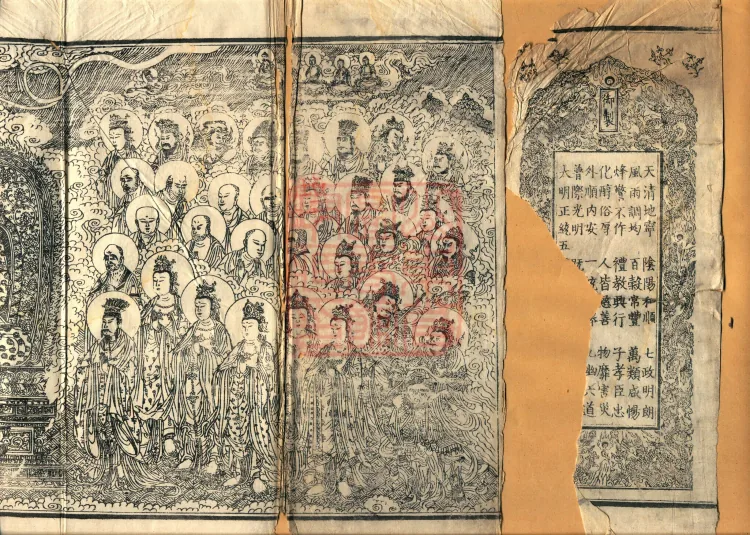 御製
天清地寧　陰陽和順　七政明朗
風雨調均　百穀常豐　萬類咸暢
烽警不作　禮教興行　子孝臣忠
化醇俗厚　人皆慈善　物靡害災
外順內安　一　幽六道
普際光明
大明正統五